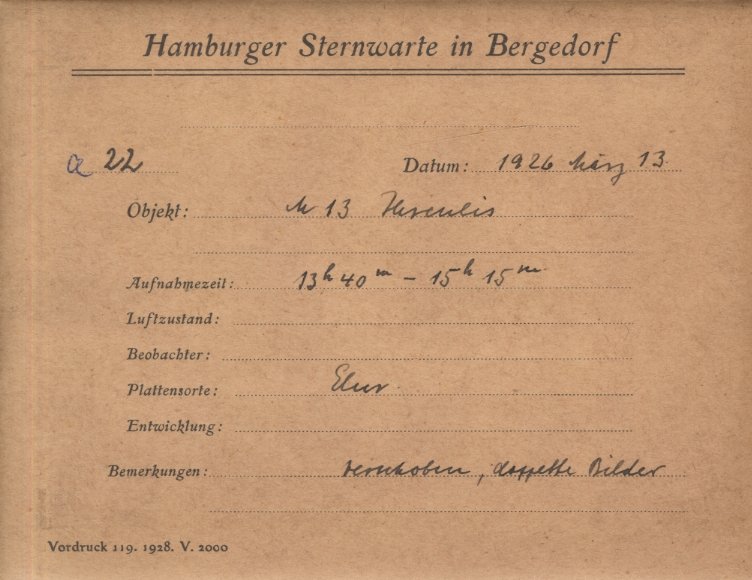 Hamburger Sternwarte in Bergedorf
a 22 Datum: 1926 März 13.
Objekt: M 13 Herculis
Aufnahmezeit: 13h 40m – 15h 15m
Luftzustand:
Beobachter:
Plattensorte:
Entwicklung:
Bemerkungen: verschoben, doppelte Bilder
Vordruck 119. 1928. V. 2000